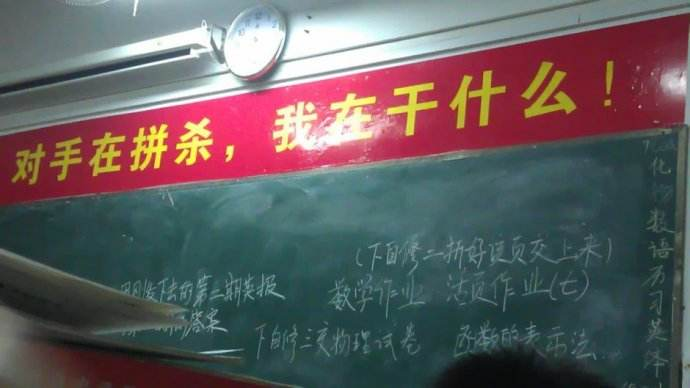 对手在拼杀，我在干什么！
(下自修二折好活页交上来)
发下去的第三期英报
数学作业 活页作业(七)
答案
下自修三交物理试卷 函数的表示法
化
数
语
历
习
英